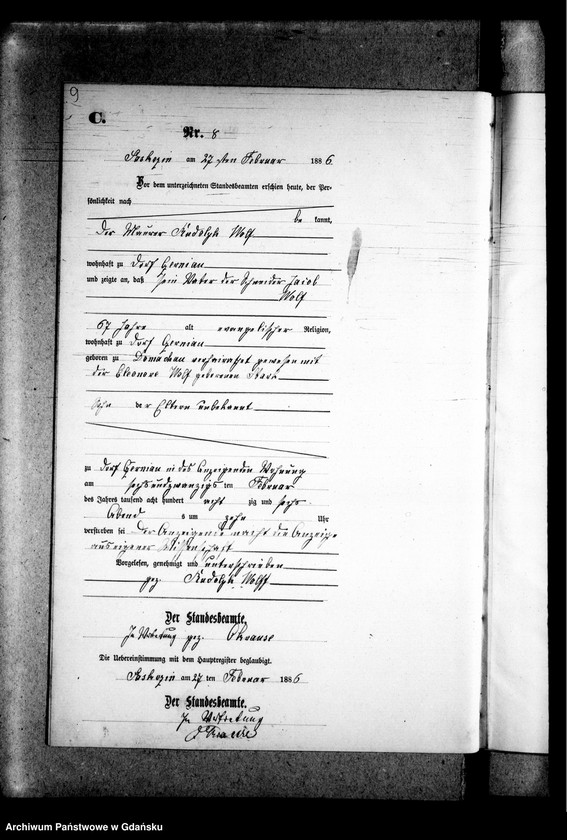 9
C.
Nr. 8
am 27 ten Februar 1886.
Vor dem unterzeichneten Standesbeamten erschien heute, der Per-
sönlichkeit nach
be kannt,
der Maurer Rudolph Wolf
wohnhaft zu Dorf Czernian
und zeigte an, daß sein Vater der Schneider Jacob
Wolf
67 Jahre alt evangelischer Religion,
wohnhaft zu Dorf Czernian
geboren zu Domachau verheirathet gewesen mit
der Eleonore Wolf geborenen
Sohn der Eltern unbekannt
zu Dorf Czernian in des Anzeigenden Wohnung
am sechsundzwanzigs ten Februar
des Jahres tausend acht hundert acht zig und sechs
Abend s um zehn Uhr
verstorben sei der Anzeigende macht die Anzeige
aus eigener Wissenschaft
Vorgelesen, genehmigt und unterschrieben
gez. Rudolph Wolff
Der Standesbeamte,
In Vertretung gez. Krause
Die Uebereinstimmung mit dem Hauptregister beglaubigt.
am 27 ten Februar 1886
Der Standesbeamte.
In Vertretung
Krause
Archiwum Państwowe w Gdańsku